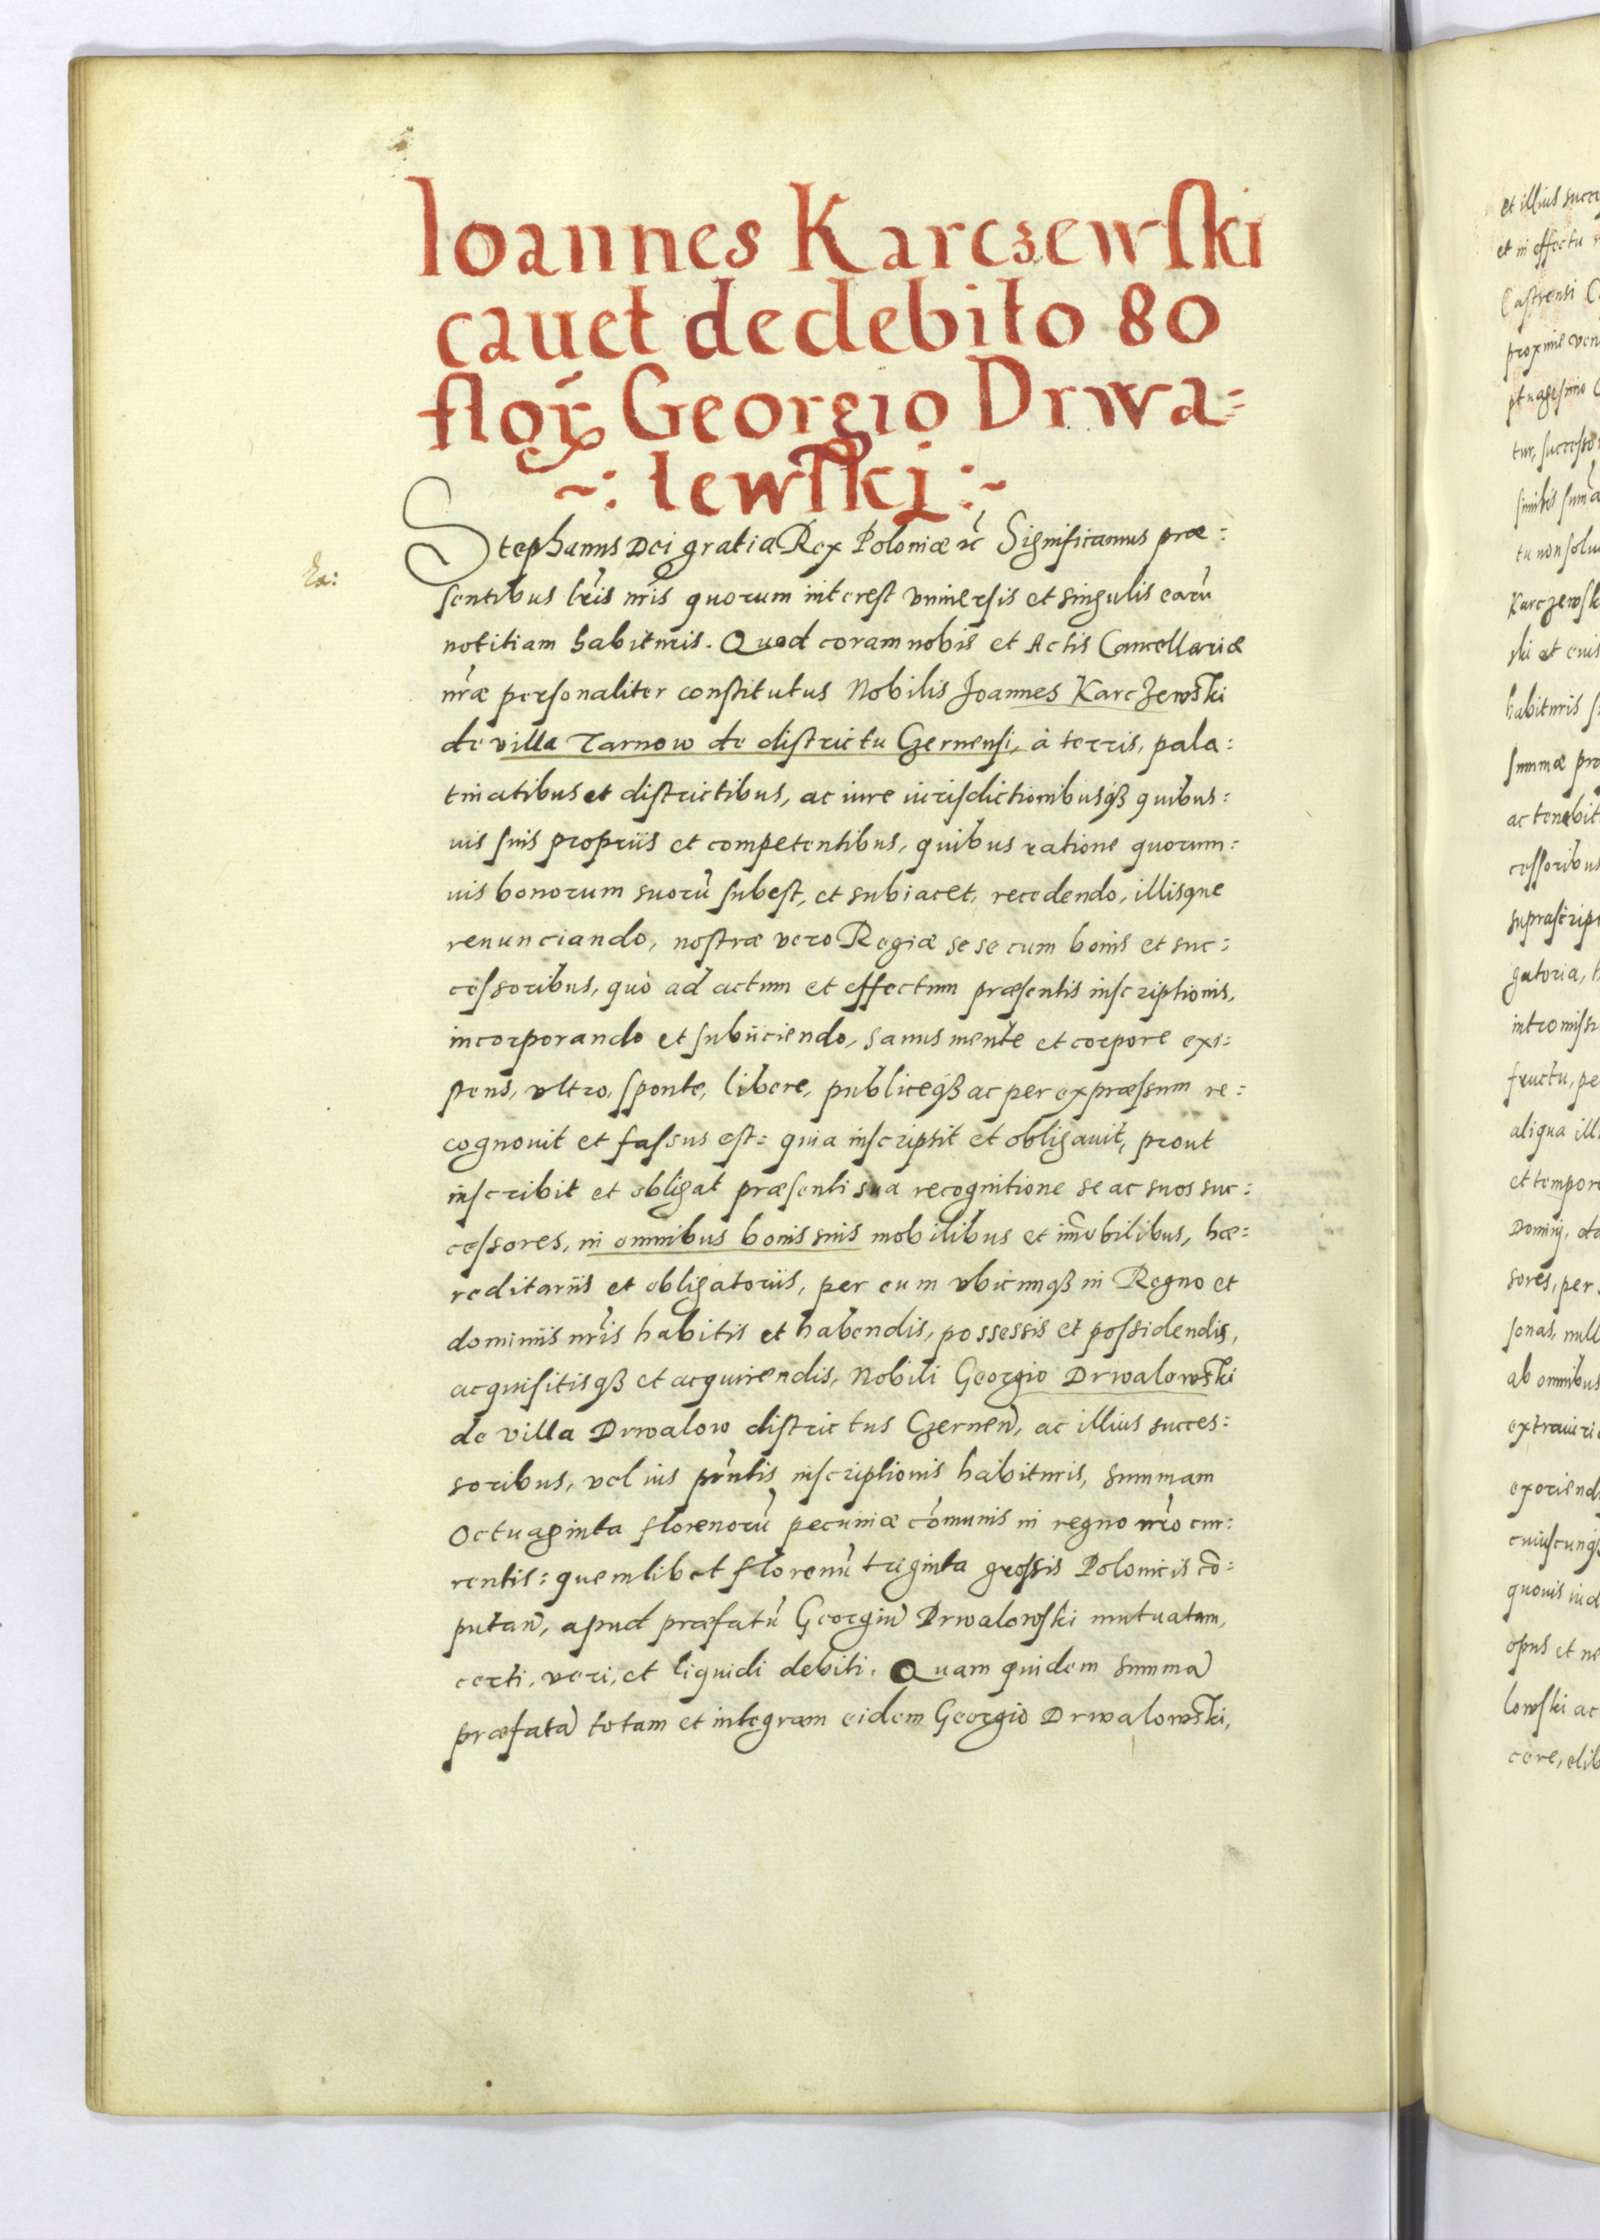 Ioannes Karczewski
cavet de debito 80
flor̃ Georgio Drwa=
~: lewski :~
Stephanus Dei gratia Rex Poloniæ ꝛc̃ Significamus præ:
sentibus lr̃is nr̃is quorum interest vniuersis et singulis earũ
notitiam habituris. Quod coram nobis et Actis Cancellariæ
nr̃æ personaliter constitutus Nobilis Joannes Karczewski
de villa Tarnow de districtu Czernensi, à terris, pala:
tinatibus et districtibus, ac iure iurisdictionibusqꝫ quibus:
uis suis propriis et competentibus, quibus ratione quorum:
uis bonorum suorũ subest, et subiacet, recedendo, illisque
renunciando, nostræ vero Regiæ se se cum bonis et suc:
cessoribus, quò ad actum et effectum præsentis inscriptionis,
incorporando et subiiciendo, sanus mente et corpore exi:
stens, vltro, sponte, libere, publiceqꝫ ac per expræssum re:
cognouit et fassus est: quia inscripsit et obligauit, prout
inscribit et obligat præsenti sua recognitione se ac suos suc:
cessores, in omnibus bonis suis mobilibus et im̃obilibus, hæ:
reditariis et obligatoriis, per eum vbicunqꝫ in Regno et
dominiis nr̃is habitis et habendis, possessis et possidendis,
acquisitisqꝫ et acquirendis, Nobili Georgio Drwalowski
de villa Drwalow districtus Czerneñ, ac illius succes:
soribus, vel ius pñtis inscriptionis habituris, summam
Octuaginta florenorũ pecuniæ com̃unis in regno nr̃o cur:
rentis: quemlibet florenũ triginta grossis Polonicis cõ:
putañ, apud præfatũ Georgiũ Drwalowski mutuatam,
certi, veri, et liquidi debiti. Quam quidem summã
præfatã totam et integram eidem Georgio Drwalowski,
et illius succe
et in effectu
Castrensi
proxime ven
ptuagesimo
tur, successo
tu non solu
Karczewsk
ski et eius
habituris
summæ pr
ac tenebit
cessoribus
suprascrip
gatoria,
intromiss
fructu, pe
aliqua ill
et tempor
Domini,
sores, per
sonas, null
ab omnibus
extraiuri
exoriend
cuiuscunqꝫ
quouis iud
opus et ne
lowski ac
cere, elib